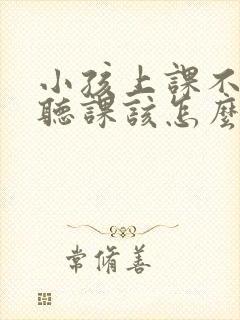 小孩上課不
聽課該怎麼
常脩善